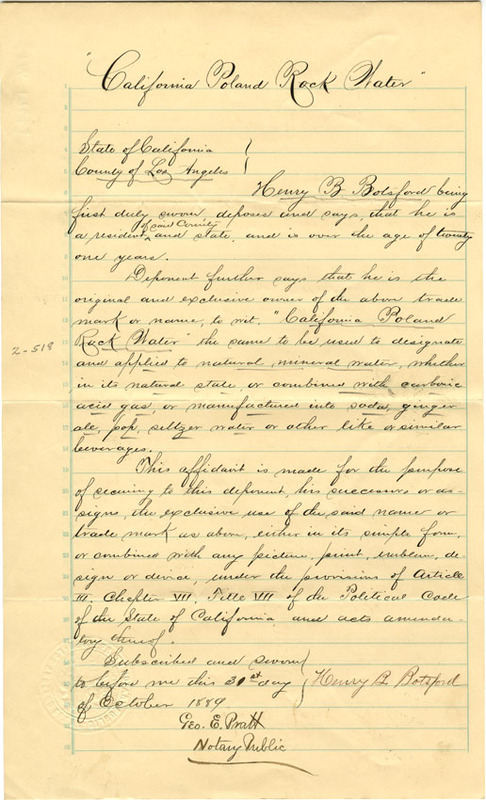 "California Poland Rock Water"
State of California }
County of Los Angeles }
Henry B Botsford being
first duly sworn, deposes and says, that he is
a resident of said County and state, and is over the age of twenty
one years.
Deponent further says that he is the
original and exclusive owner of the above trade
mark or name, to wit, "California Poland
Rock Water" the same to be used to designate
2-518
and applied to natural, mineral water, whether
in its natural state, or combined with carbonic
acid gas, or manufactured into soda, ginger
ale, pop, seltzer water or other like or similar
beverages.
This affidavit is made for the purpose
of securing to this deponent, his successors or as-
signs, the exclusive use of the said name or
trade mark as above, either in its simple form,
or combined with any picture, print, emblem, de-
sign or device, under the provisions of Article
III, Chapter VII, Title VII of the Political Code
of the State of California and acts amenda-
tory thereof.
Subscribed and sworn }
to before me this 31st day } Henry B Botsford
of October 1889
Geo. E. Pratt
Notary Public